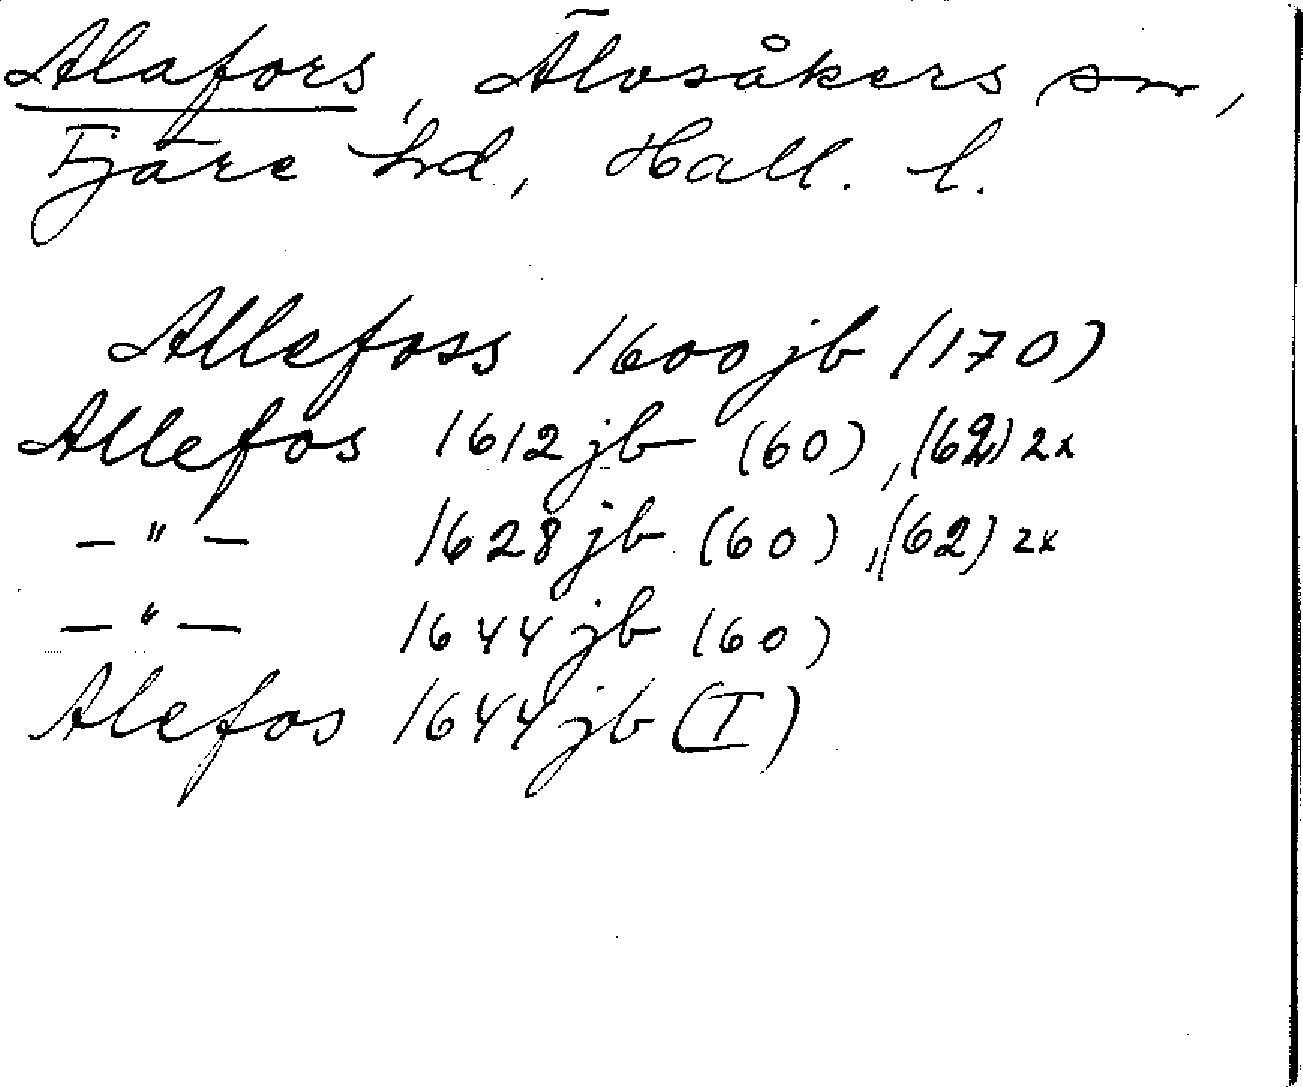 Alafors, Älvsåkers sn,
Fjäre hd, Hall. l.
Allefoss 1600 jb (170)
Allefos 1612 jb (60), (62) 2x
- " - 1628 jb (60), (62) 2x
- " - 1644 jb (60)
Alefos 1644 jb (I)